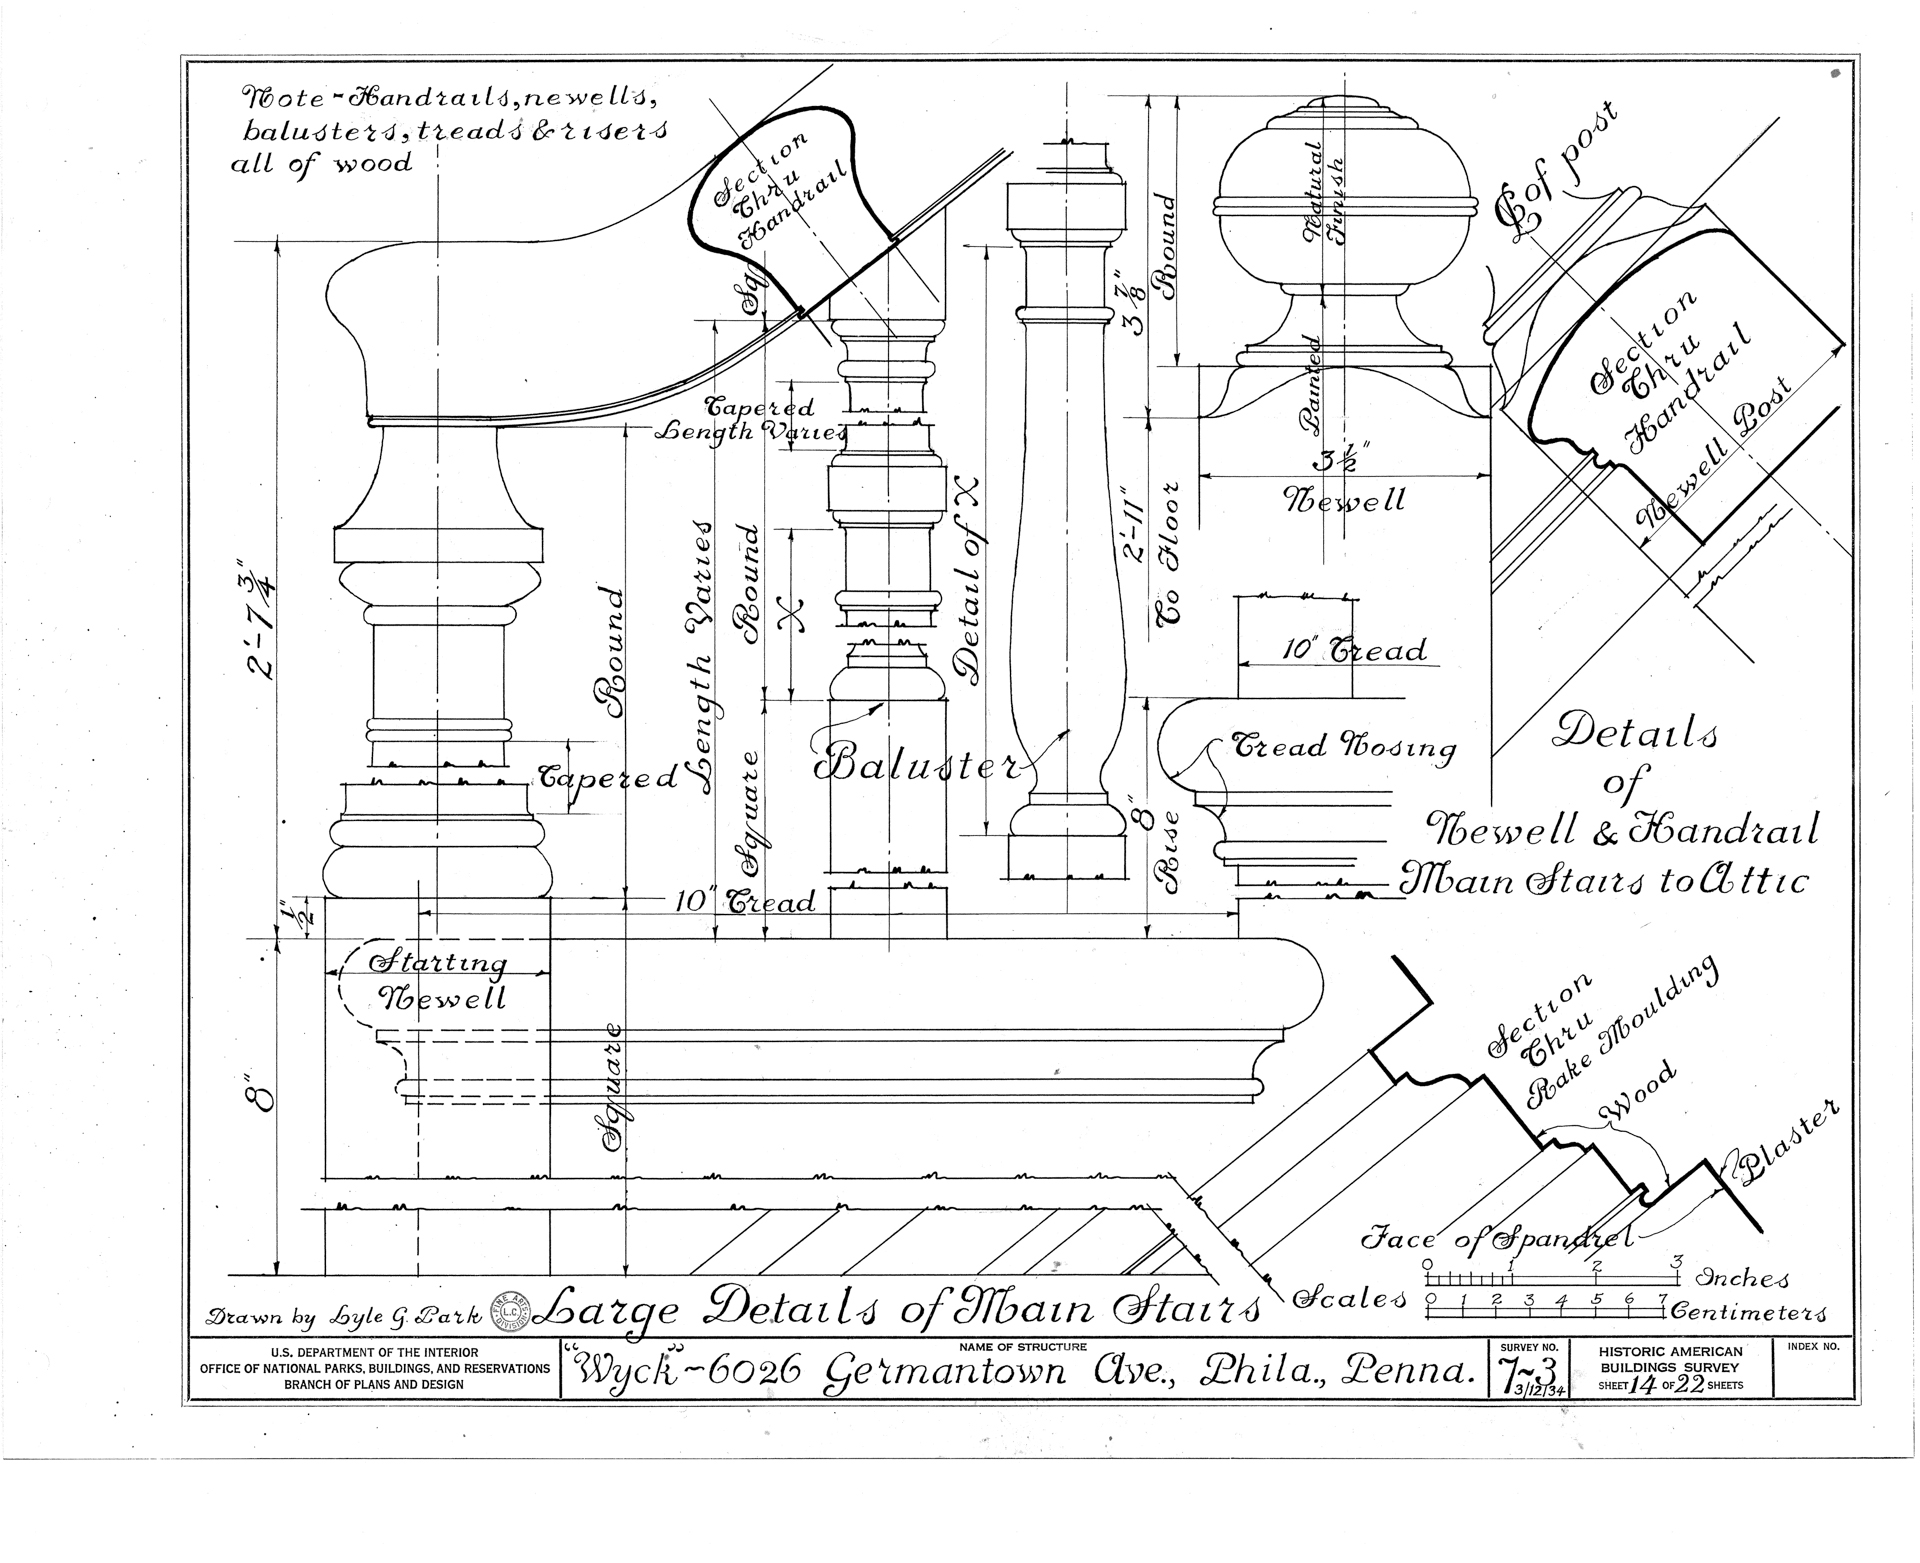 Note - Handrails, newells,
balusters, treads & risers
all of wood
Section
Thru
Handrail
Sq.
2'-7 3/4"
Tapered
Length Varies
Round
Length Varies
Round
X
Square
Detail of X
Baluster
Tapered
10" Tread
1/2"
Starting
Newell
8"
Square
3 7/8"
Round
Natural
Finish
Painted
3 1/2"
Newell
2'-11"
To Floor
10" Tread
Tread Nosing
8"
Rise
℄ of post
Section
Thru
Handrail
Newell Post
Details
of
Newell & Handrail
Main Stairs to Attic
Section
Thru
Rake Moulding
Wood
Plaster
Face of Spandrel
Scales
0 1 2 3 Inches
0 1 2 3 4 5 6 7 Centimeters
Drawn by Lyle G. Park
FINE ARTS
L.C.
DIVISION
Large Details of Main Stairs
U.S. DEPARTMENT OF THE INTERIOR
OFFICE OF NATIONAL PARKS, BUILDINGS, AND RESERVATIONS
BRANCH OF PLANS AND DESIGN
NAME OF STRUCTURE
"Wyck" ~ 6026 Germantown Ave., Phila., Penna.
SURVEY NO.
7~3
3/12/34
HISTORIC AMERICAN
BUILDINGS SURVEY
SHEET 14 OF 22 SHEETS
INDEX NO.